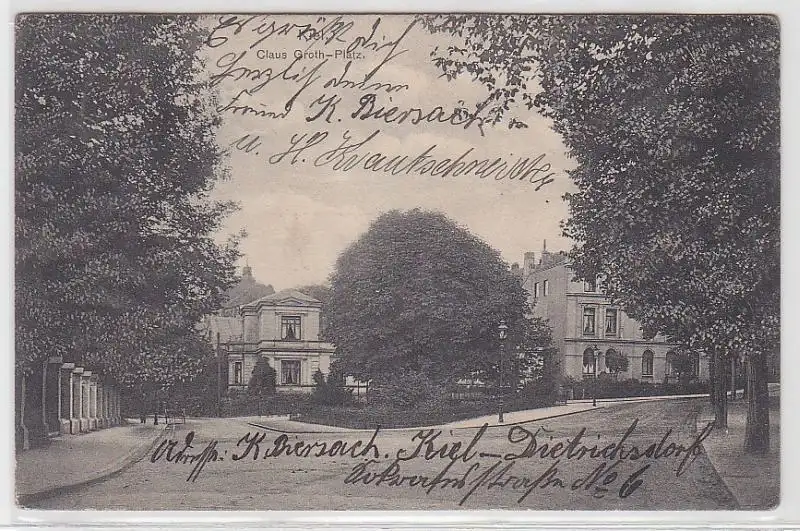 Kiel.
Claus Groth-Platz.
Es grüßt dich
herzlich dein
Freund K. Biersach.
u. H. Krautschneider
Adresse: K. Biersach. Kiel - Dietrichsdorf
straße No 6